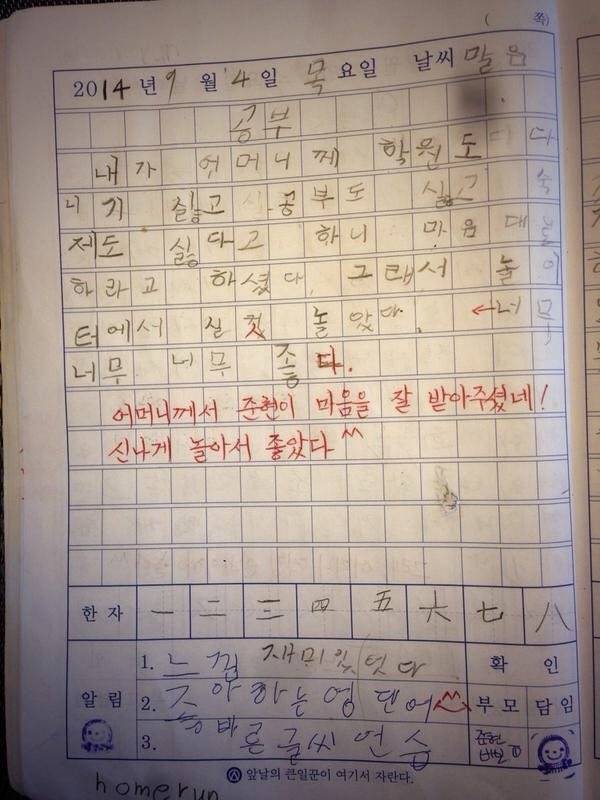 ( 쪽)
2014년 9월 4일 목요일 날씨 맑음
공부
내가 어머니께 학원도 다
니기 싫고 공부도 싫고 숙
제도 싫다고 하니 마음대로
하라고 하셨다. 그래서 놀이
터에서 실컷 놀았다. ←너무
너무 너무 좋다.
어머니께서 준현이 마음을 잘 받아주셨네!
신나게 놀아서 좋았다 ^^
한자 一 二 三 四 五 六 七 八
알림
1. 느낌 재미있엇다
2. 좋아하는 영 댄어
3. 바른글씨 연습
확인
부모 담임
준현
앞날의 큰일꾼이 여기서 자란다.
homerun